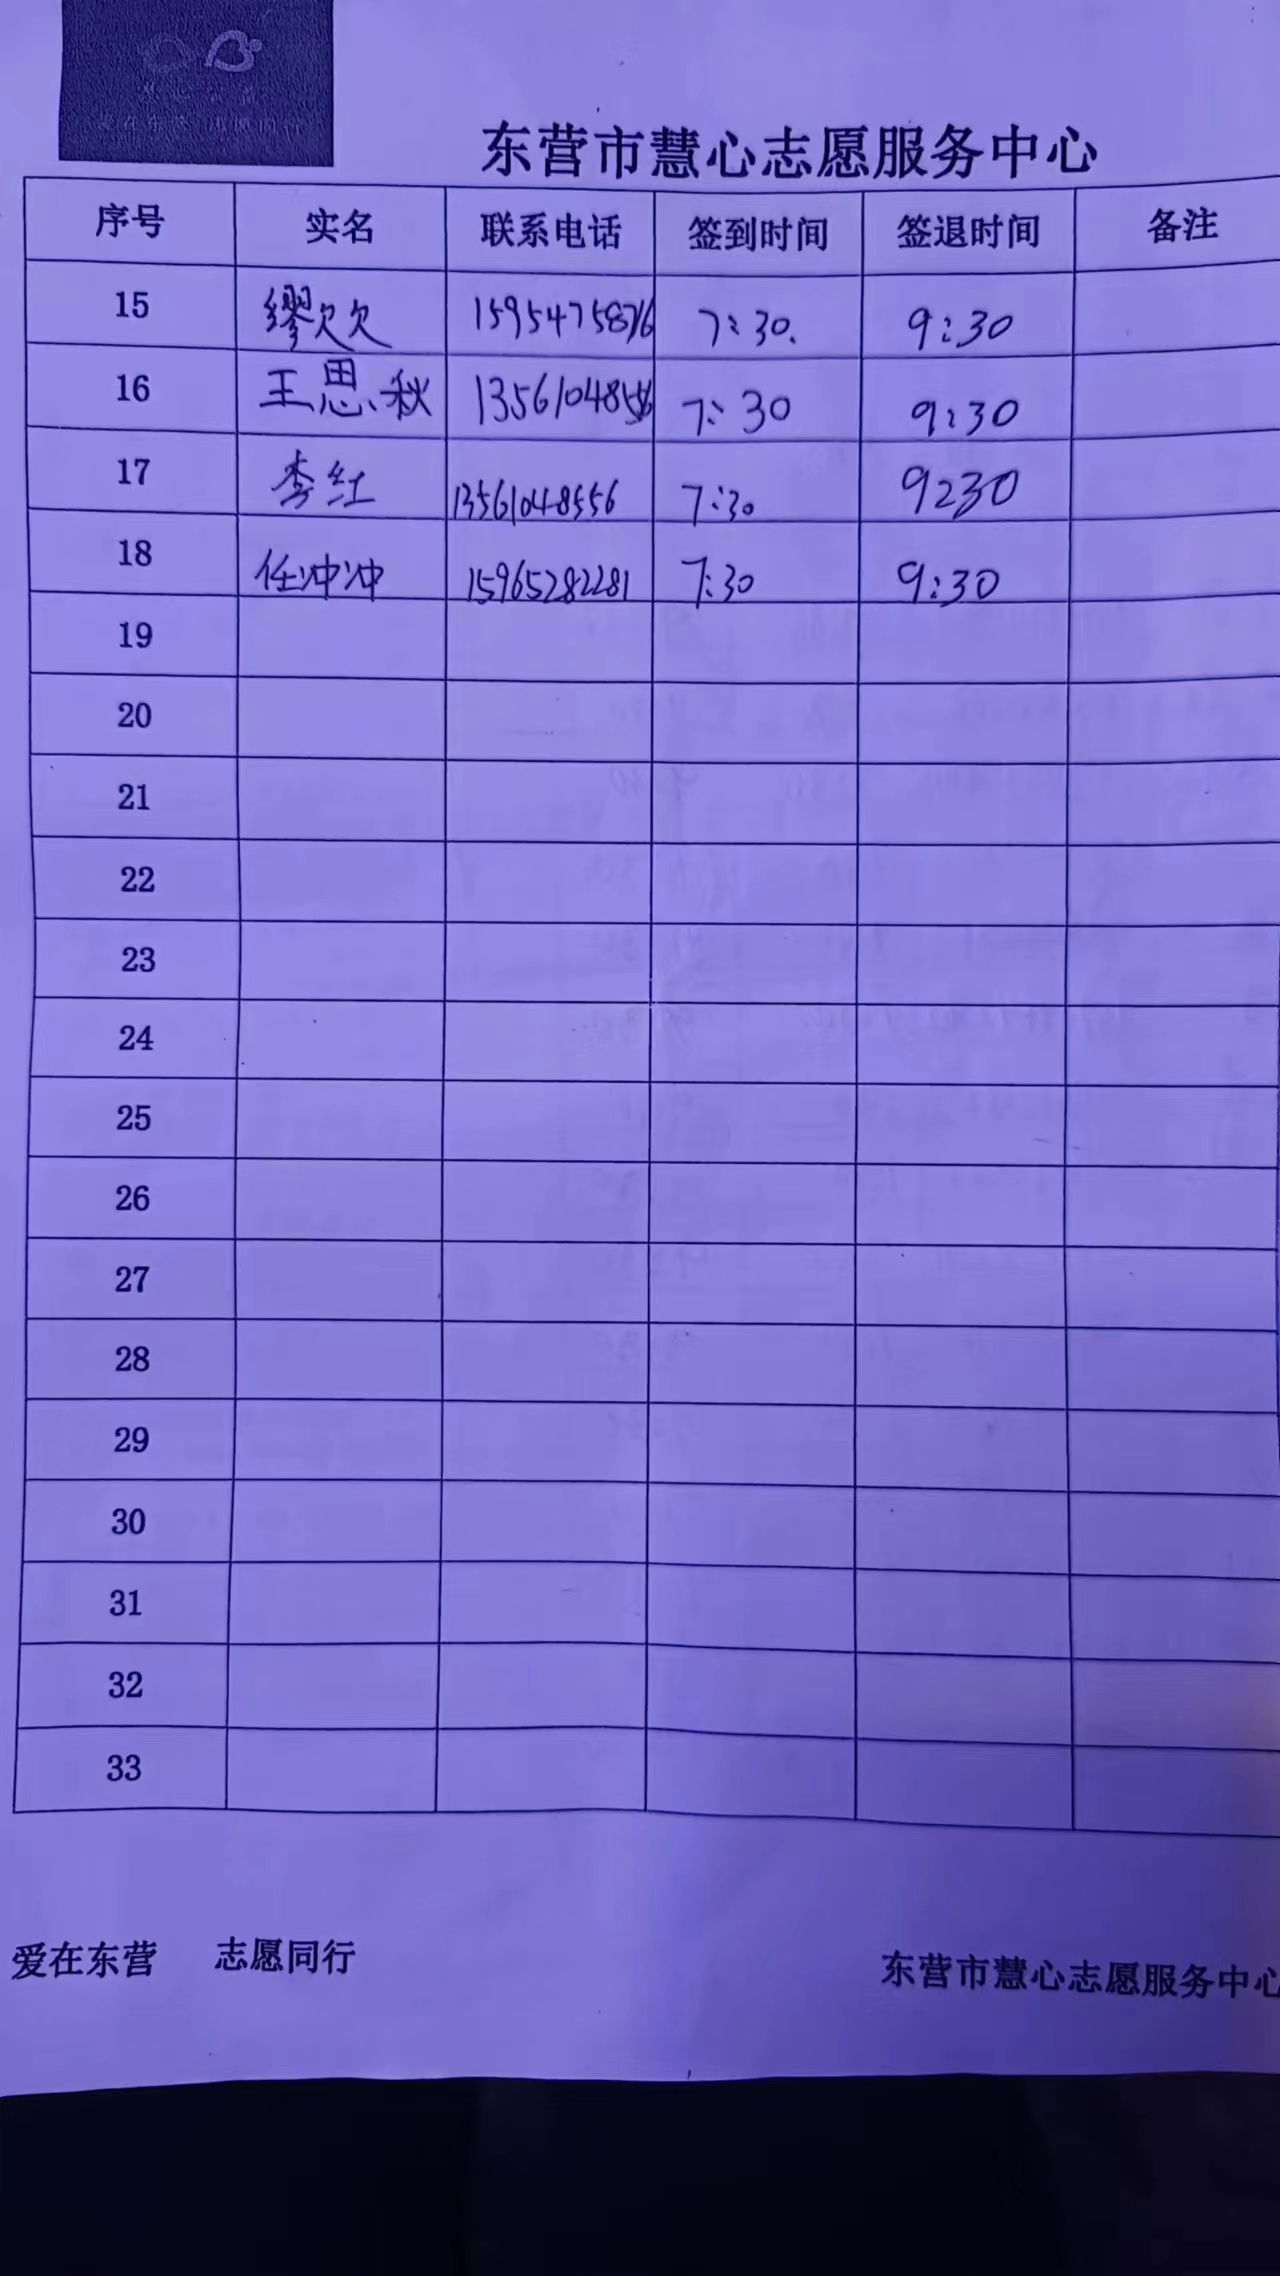 东营市慧心志愿服务中心
序号 实名 联系电话 签到时间 签退时间 备注
15 缪欠欠 15954758776 7:30. 9:30
16 王思秋 13561048556 7:30 9:30
17 李红 13561048556 7:30 9230
18 任冲冲 15965282281 7:30 9:30
19
20
21
22
23
24
25
26
27
28
29
30
31
32
33
爱在东营 志愿同行
东营市慧心志愿服务中心